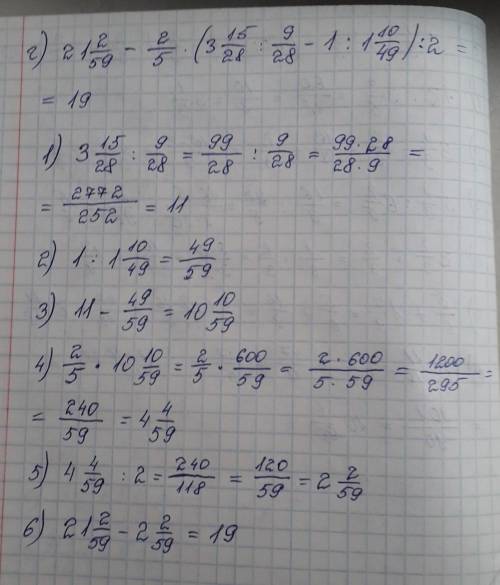 г) 21 2/59 - 2/5 · (3 15/28 : 9/28 - 1 : 1 10/49) : 2 =
= 19
1) 3 15/28 : 9/28 = 99/28 : 9/28 = 99·28/28·9 =
= 2772/252 = 11
2) 1 : 1 10/49 = 49/59
3) 11 - 49/59 = 10 10/59
4) 2/5 · 10 10/59 = 2/5 · 600/59 = 2·600/5·59 = 1200/295 =
= 240/59 = 4 4/59
5) 4 4/59 : 2 = 240/118 = 120/59 = 2 2/59
6) 21 2/59 - 2 2/59 = 19